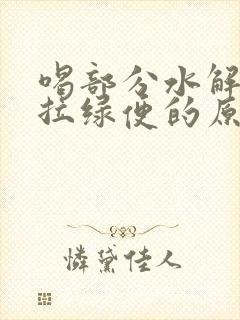 喝部分水解
拉绿便的原
憐黛佳人